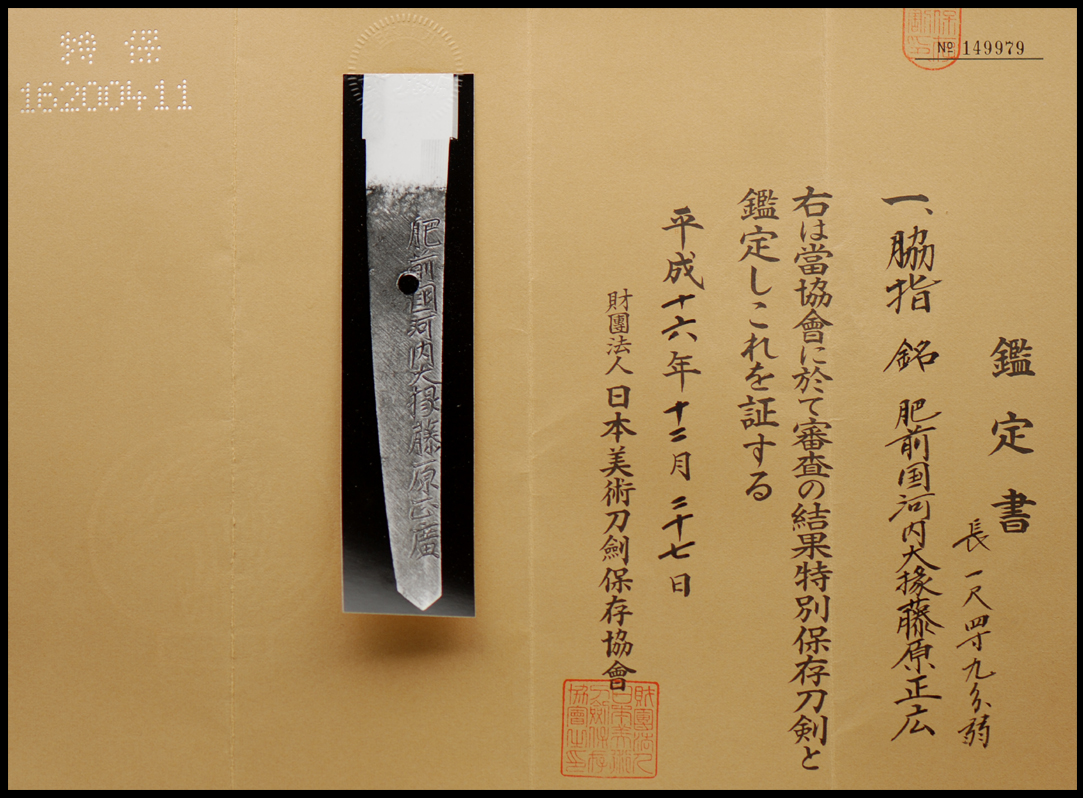 鑑定書
長一尺四寸九分弱
一、脇指 銘 肥前国河内大掾藤原正広
右は當協會に於て審査の結果特別保存刀剣と
鑑定しこれを証する
平成十六年十二月二十七日
財團法人日本美術刀劍保存協會
財團法人日本美術刀劍保存協會之印
№ 149979
肥前国河内大掾藤原正廣
特保
16200411